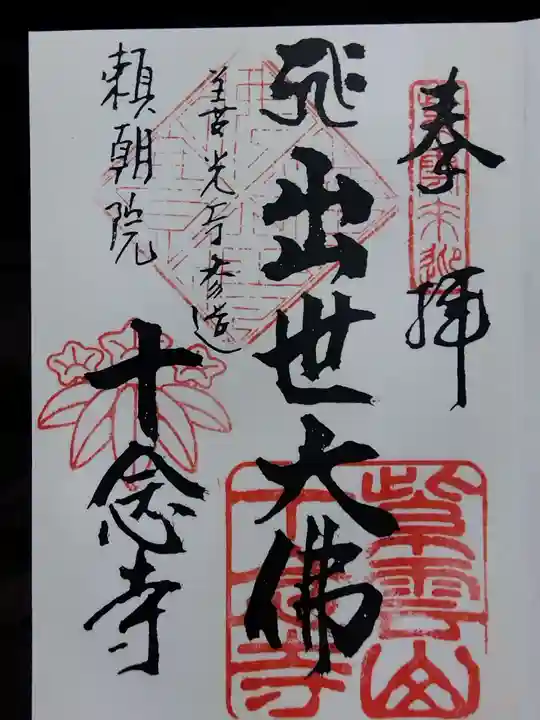 奉拝
出世大佛
善光寺参道
頼朝院
十念寺
紫雲山
十念寺